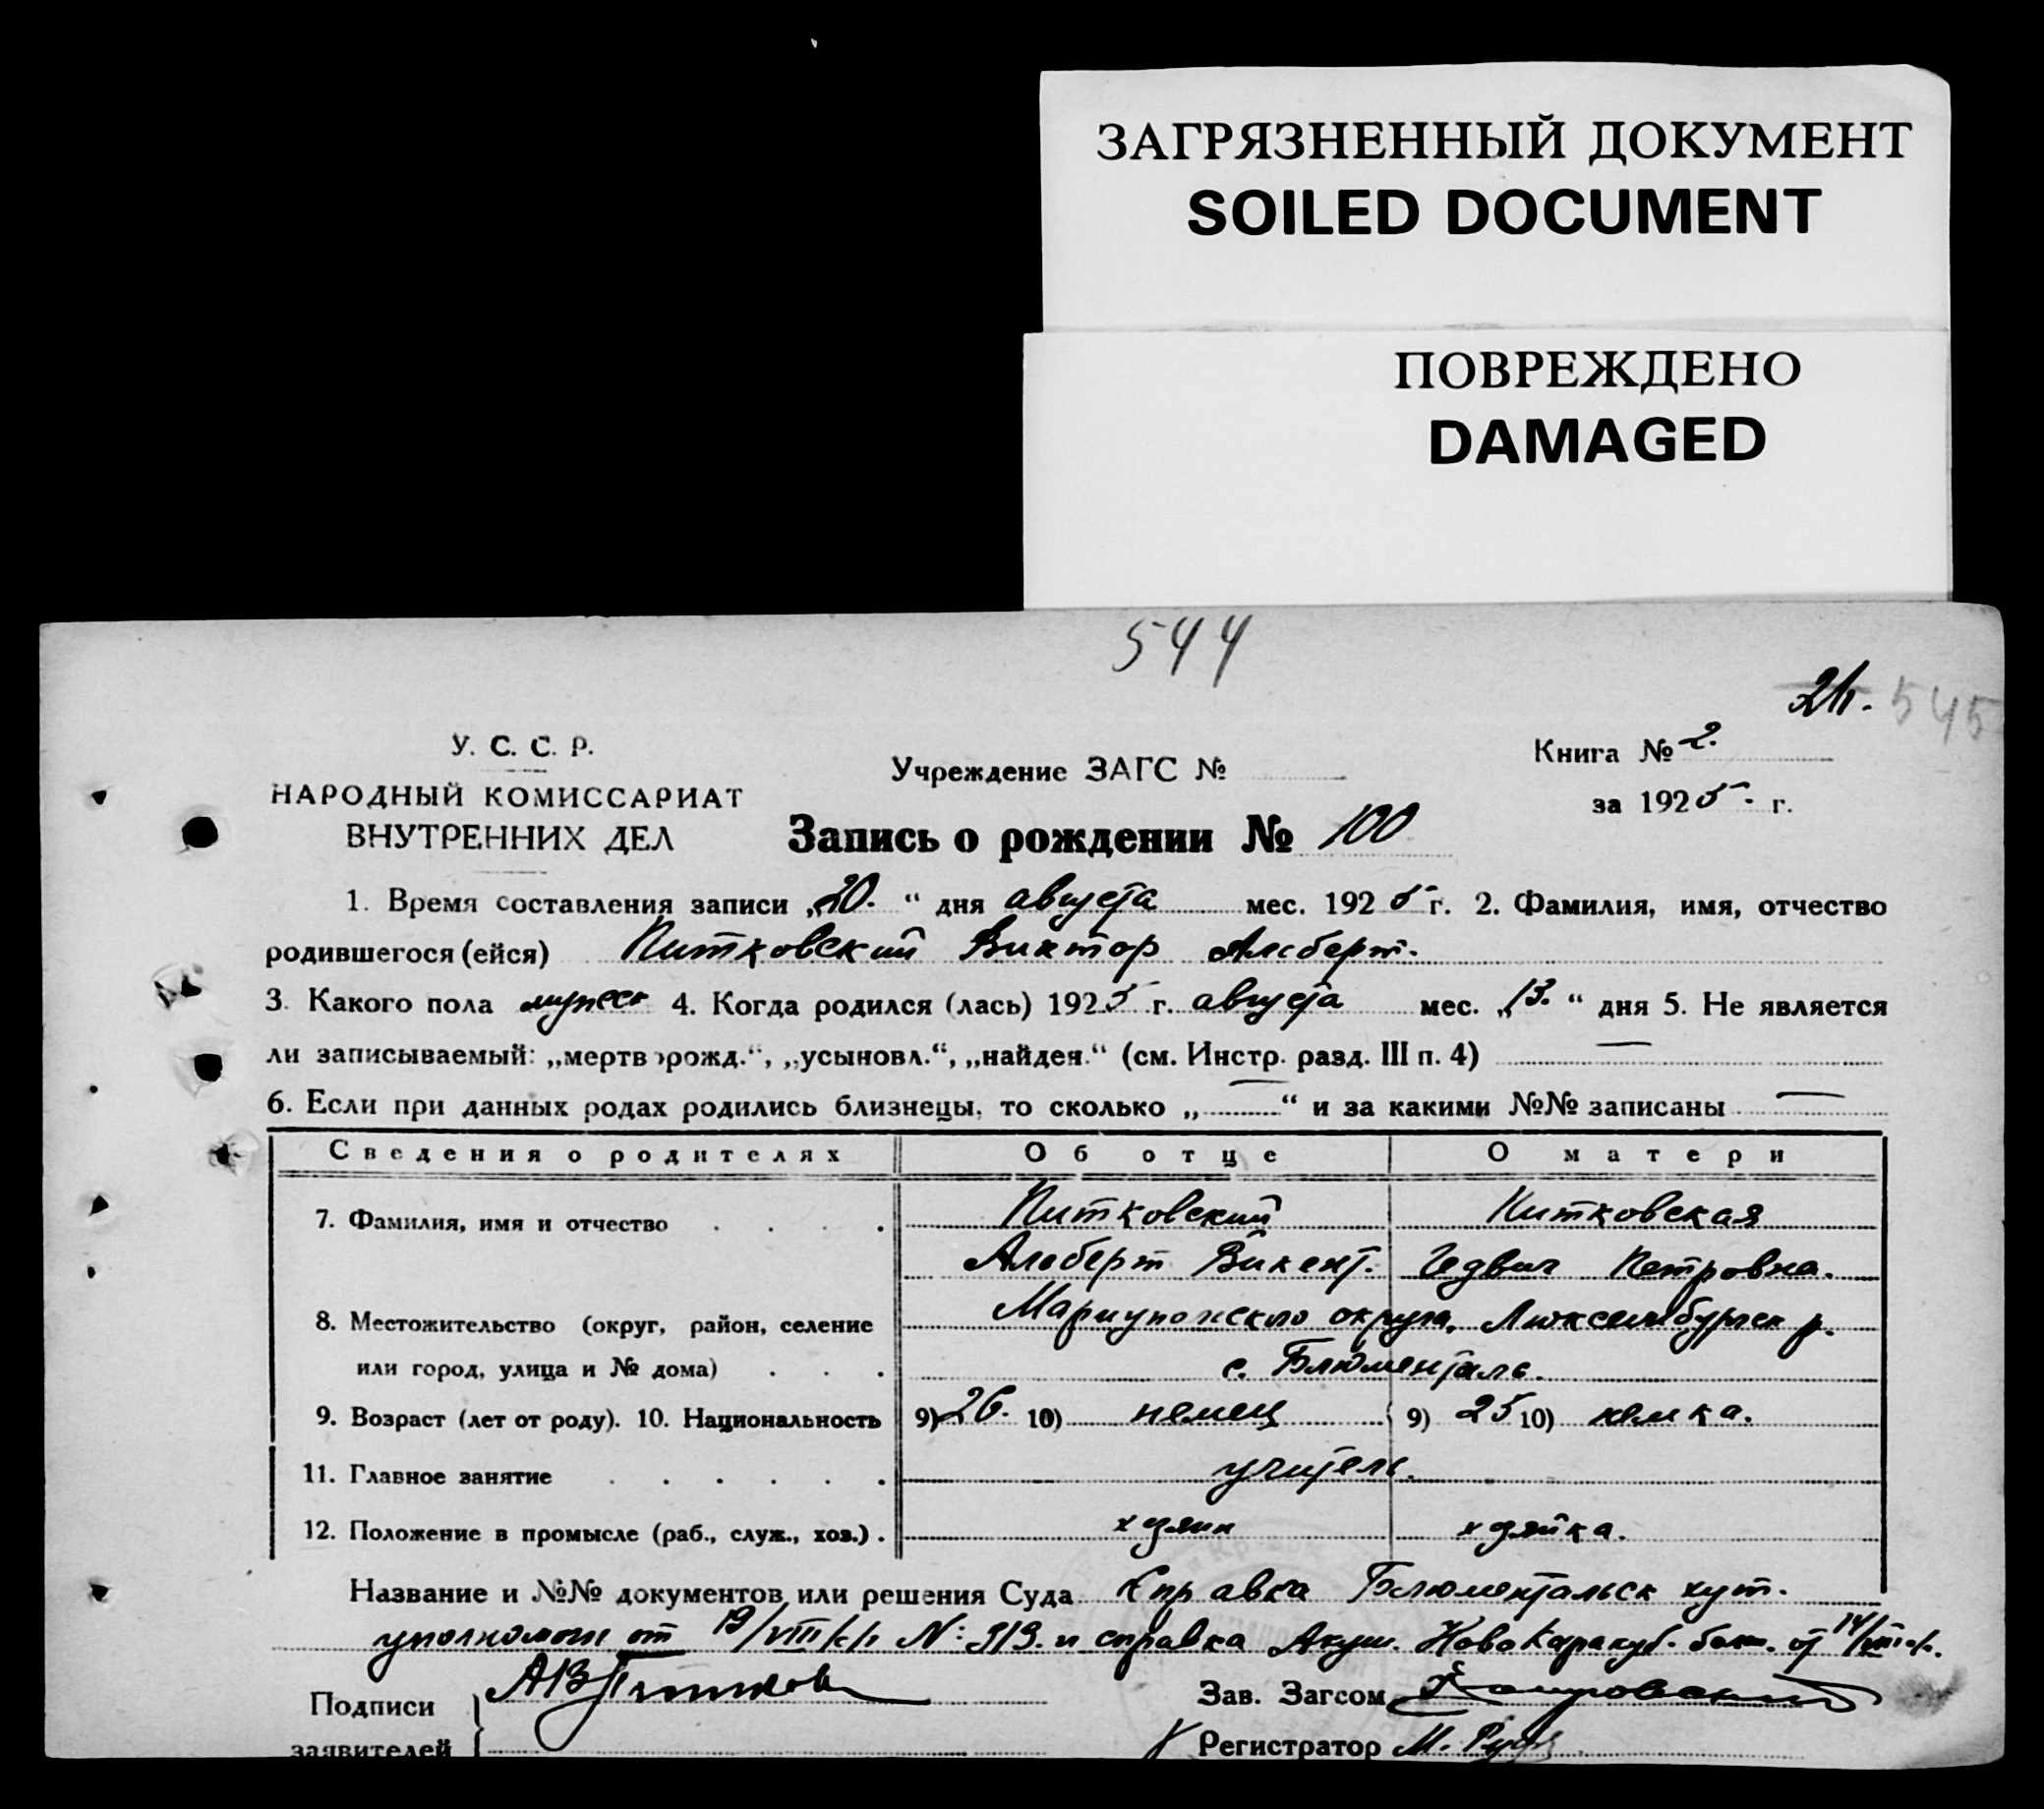 ЗАГРЯЗНЕННЫЙ ДОКУМЕНТ
SOILED DOCUMENT
ПОВРЕЖДЕНО
DAMAGED
544
545
У. С. С. Р.
НАРОДНЫЙ КОМИССАРИАТ
ВНУТРЕННИХ ДЕЛ
Учреждение ЗАГС №
Книга № 2.
за 1925. г.
Запись о рождении № 100
1. Время составления записи „20. “ дня августа мес. 1925 г. 2. Фамилия, имя, отчество
родившегося (ейся) Питковский Виктор Альберт.
3. Какого пола мужеск 4. Когда родился (лась) 1925 г. августа мес. „13. “ дня 5. Не является
ли записываемый: „мертворожд.“, „усыновл.“, „найден.“ (см. Инстр. разд. III п. 4) —
6. Если при данных родах родились близнецы, то сколько „—“ и за какими №№ записаны —
Сведения о родителях Об отце О матери
7. Фамилия, имя и отчество Питковский Питковская
Альберт Викент. Гедвиг Петровна.
8. Местожительство (округ, район, селение Мариупольского округа, Люксембургск р.
или город, улица и № дома) с. Блюменталь.
9. Возраст (лет от роду). 10. Национальность 9) 26. 10) немец 9) 25 10) немка.
11. Главное занятие учитель.
12. Положение в промысле (раб., служ., хоз.) . хозяин хозяйка.
Название и №№ документов или решения Суда Справка Блюментальск хут.
уполномоч от 19/VIII с/г № 313. и справка Акуш. НовоКаракуб. бол. от 14/VIII с/г.
Подписи
заявителей
Зав. Загсом
Регистратор М.